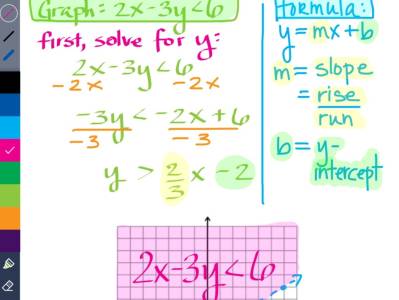 Graph: 2x-3y<6
first, solve for y:
2x-3y<6
-2x -2x
-3y < -2x+6
-3 -3
y > 2/3 x -2
Formula:
y=mx+b
m= slope
= rise
run
b= y-
intercept
2x-3y<6